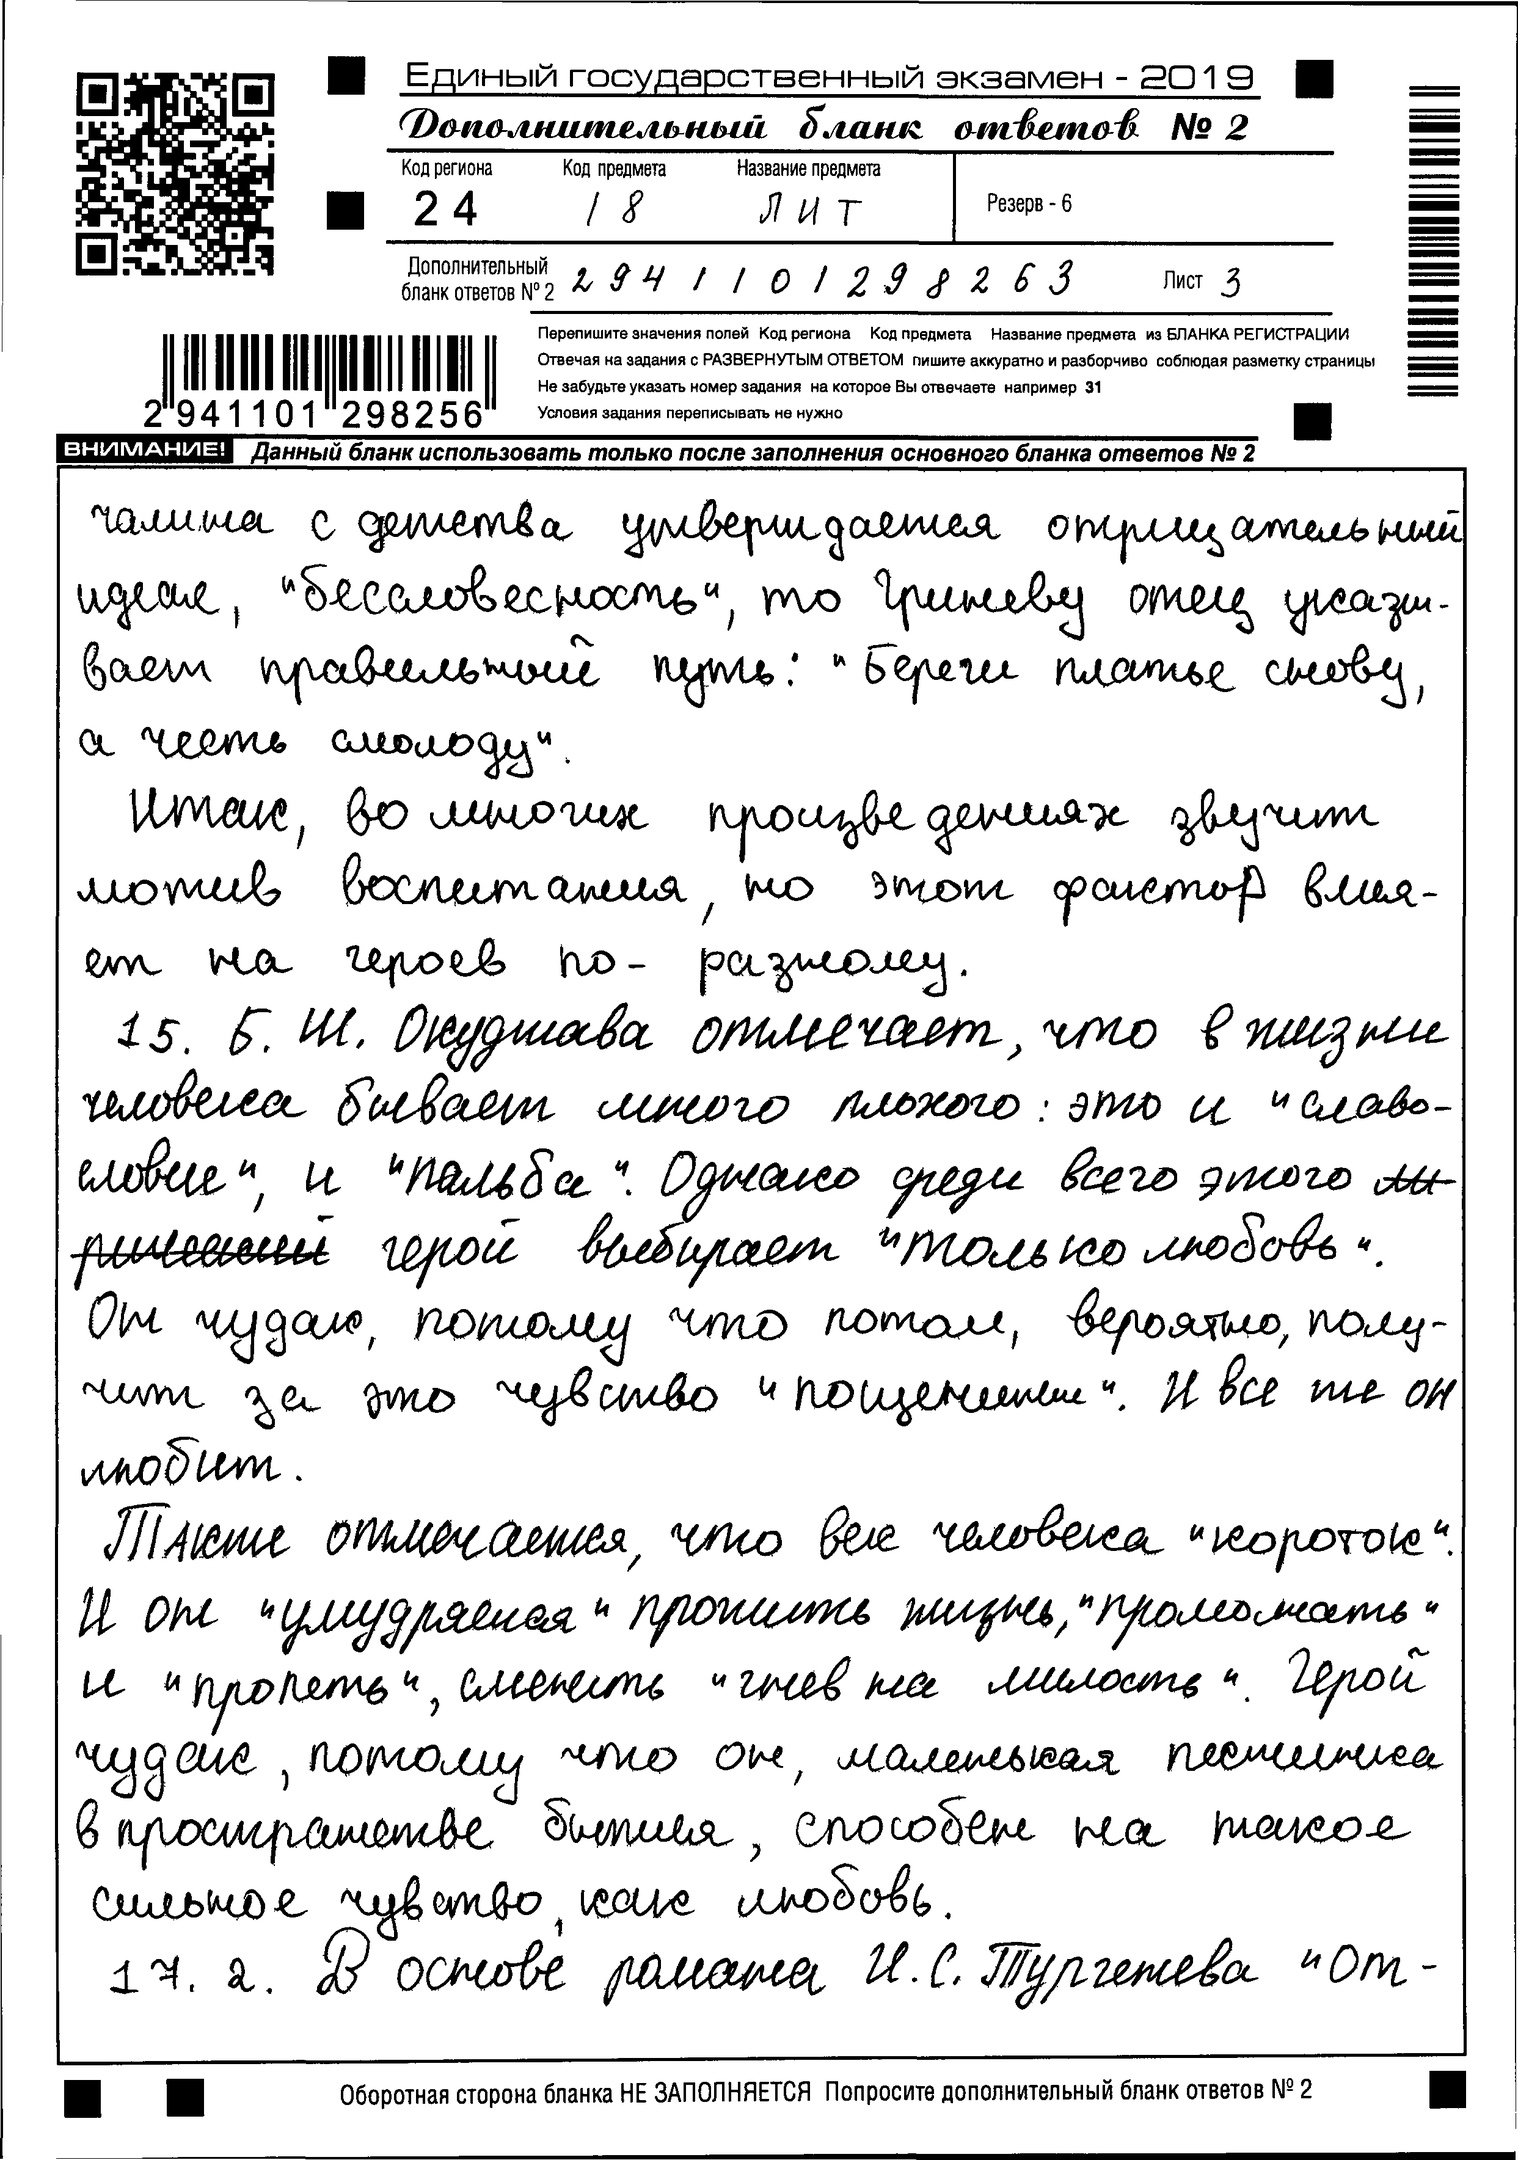 Единый государственный экзамен - 2019
Дополнительный бланк ответов № 2
Код региона Код предмета Название предмета
24 18 ЛИТ Резерв - 6
Дополнительный бланк ответов № 2 2941101298263 Лист 3
Перепишите значения полей Код региона Код предмета Название предмета из БЛАНКА РЕГИСТРАЦИИ
Отвечая на задания с РАЗВЕРНУТЫМ ОТВЕТОМ пишите аккуратно и разборчиво соблюдая разметку страницы
Не забудьте указать номер задания на которое Вы отвечаете например 31
Условия задания переписывать не нужно
2 941101 298256
ВНИМАНИЕ! Данный бланк использовать только после заполнения основного бланка ответов № 2
чалина с детства утверждается отрицательный
идеал, "бессловесность", то Гриневу отец указы-
вает правильный путь: "Береги платье снову,
а честь смолоду".
Итак, во многих произведениях звучит
мотив воспитания, но этот фактор влия-
ет на героев по- разному.
15. Б. Ш. Окуджава отмечает, что в жизни
человека бывает много плохого: это и "славо-
словие", и "пальба". Однако среди всего этого ли-
рический герой выбирает "только любовь".
Он чудак, потому что потом, вероятно, полу-
чит за это чувство "пощечины". И все же он
любит.
Также отмечается, что век человека "короток".
И он "умудряется" прожить жизнь, "промолчать"
и "пропеть", сменить "гнев на милость". Герой
чудак, потому что он, маленькая песчинка
в пространстве бытия, способен на такое
сильное чувство, как любовь.
17. 2. В основе романа И. С. Тургенева "От-
Оборотная сторона бланка НЕ ЗАПОЛНЯЕТСЯ Попросите дополнительный бланк ответов № 2